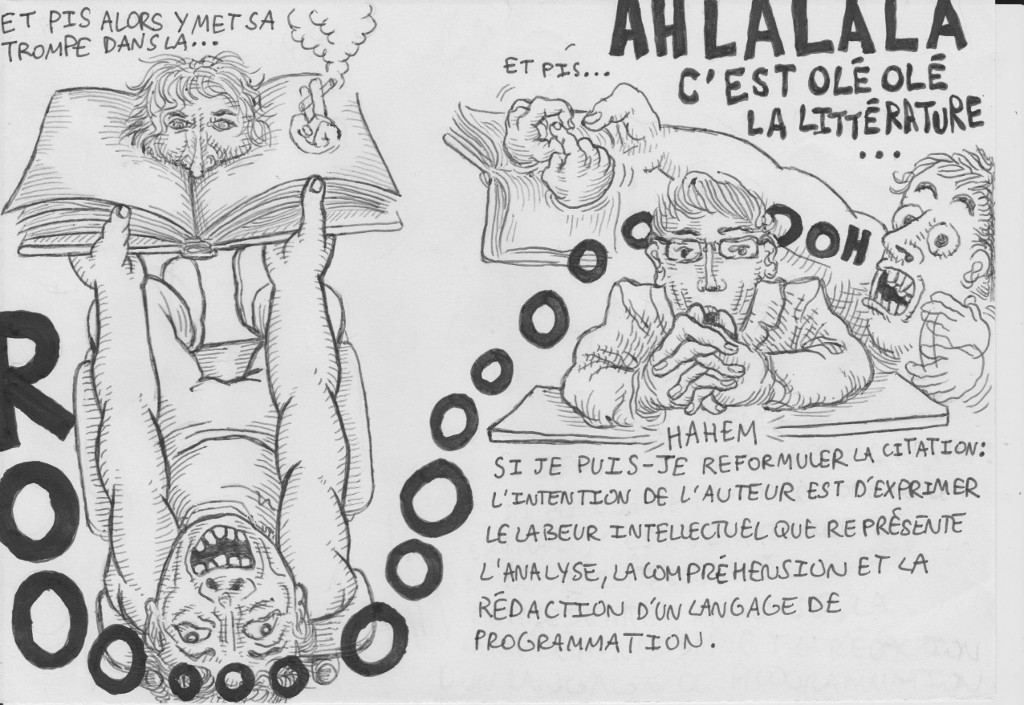 ET PIS ALORS Y MET SA
TROMPE DANS LA...
ET PIS...
AH LALALA
C'EST OLÉ OLÉ
LA LITTÉRATURE
...
ROOOOOOOOOOOOOOOOOOH
HAHEM
SI JE PUIS-JE REFORMULER LA CITATION:
L'INTENTION DE L'AUTEUR EST D'EXPRIMER
LE LABEUR INTELLECTUEL QUE REPRÉSENTE
L'ANALYSE, LA COMPRÉHENSION ET LA
RÉDACTION D'UN LANGAGE DE
PROGRAMMATION.